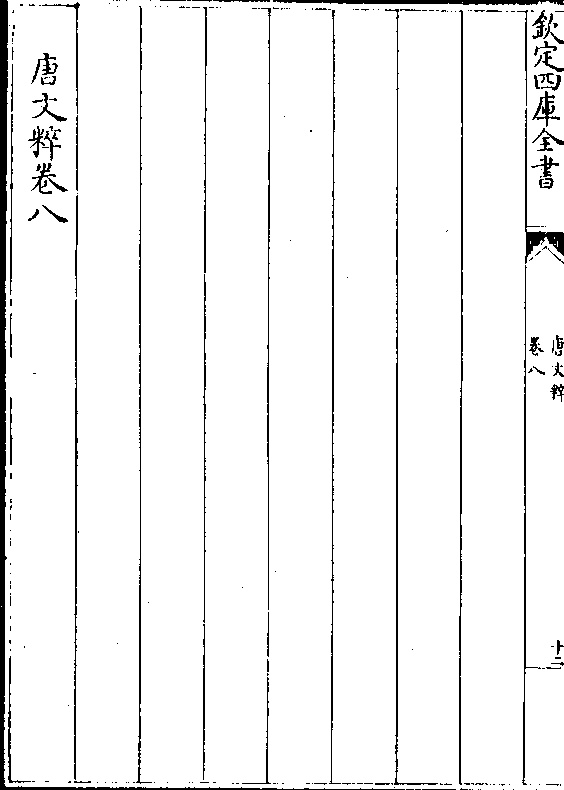 欽定四庫全書
唐文粹
卷八
十二
唐文粹卷八